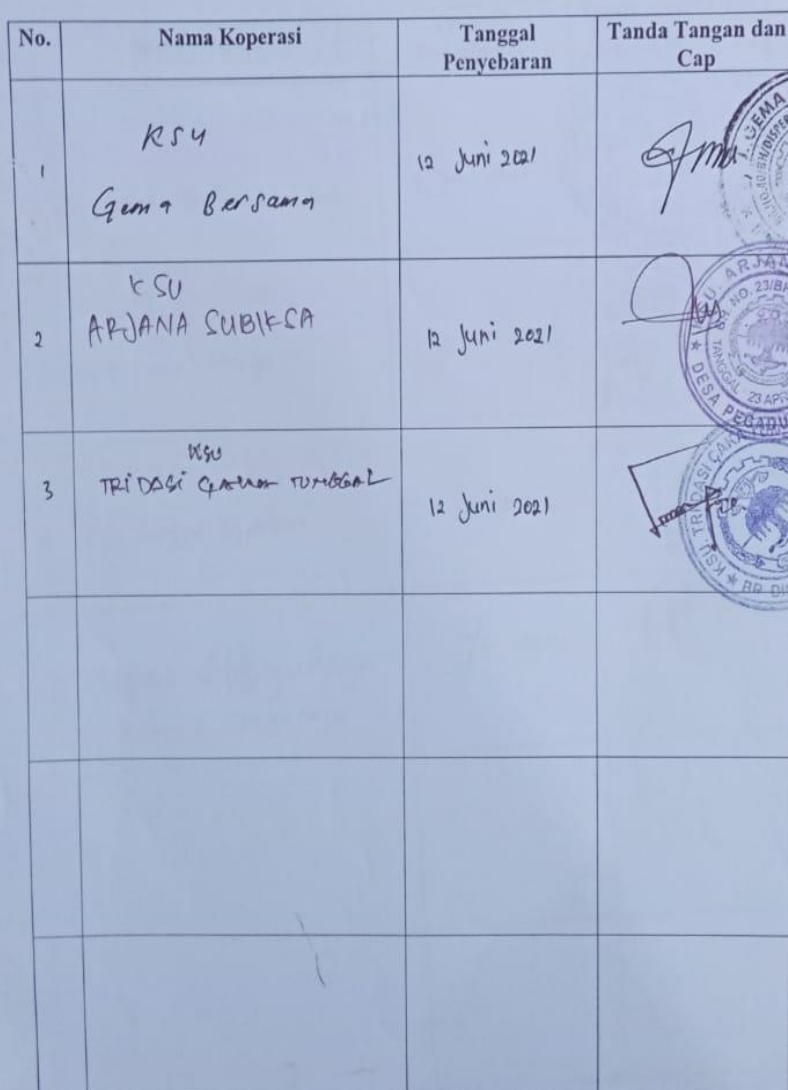 No. Nama Koperasi Tanggal Penyebaran Tanda Tangan dan Cap
1 KSU 12 Juni 2021
Gema Bersama
GEMA
KSU
2 ARJANA SUBIKSA 12 Juni 2021
U. ARJANA
NO. 23/BH
TANGGAL 23 APR
DESA PEGADU
KSU
3 TRIDASI CAKRA TUNGGAL 12 Juni 2021
KSU. TRIDASI CAKRA
BR. DI